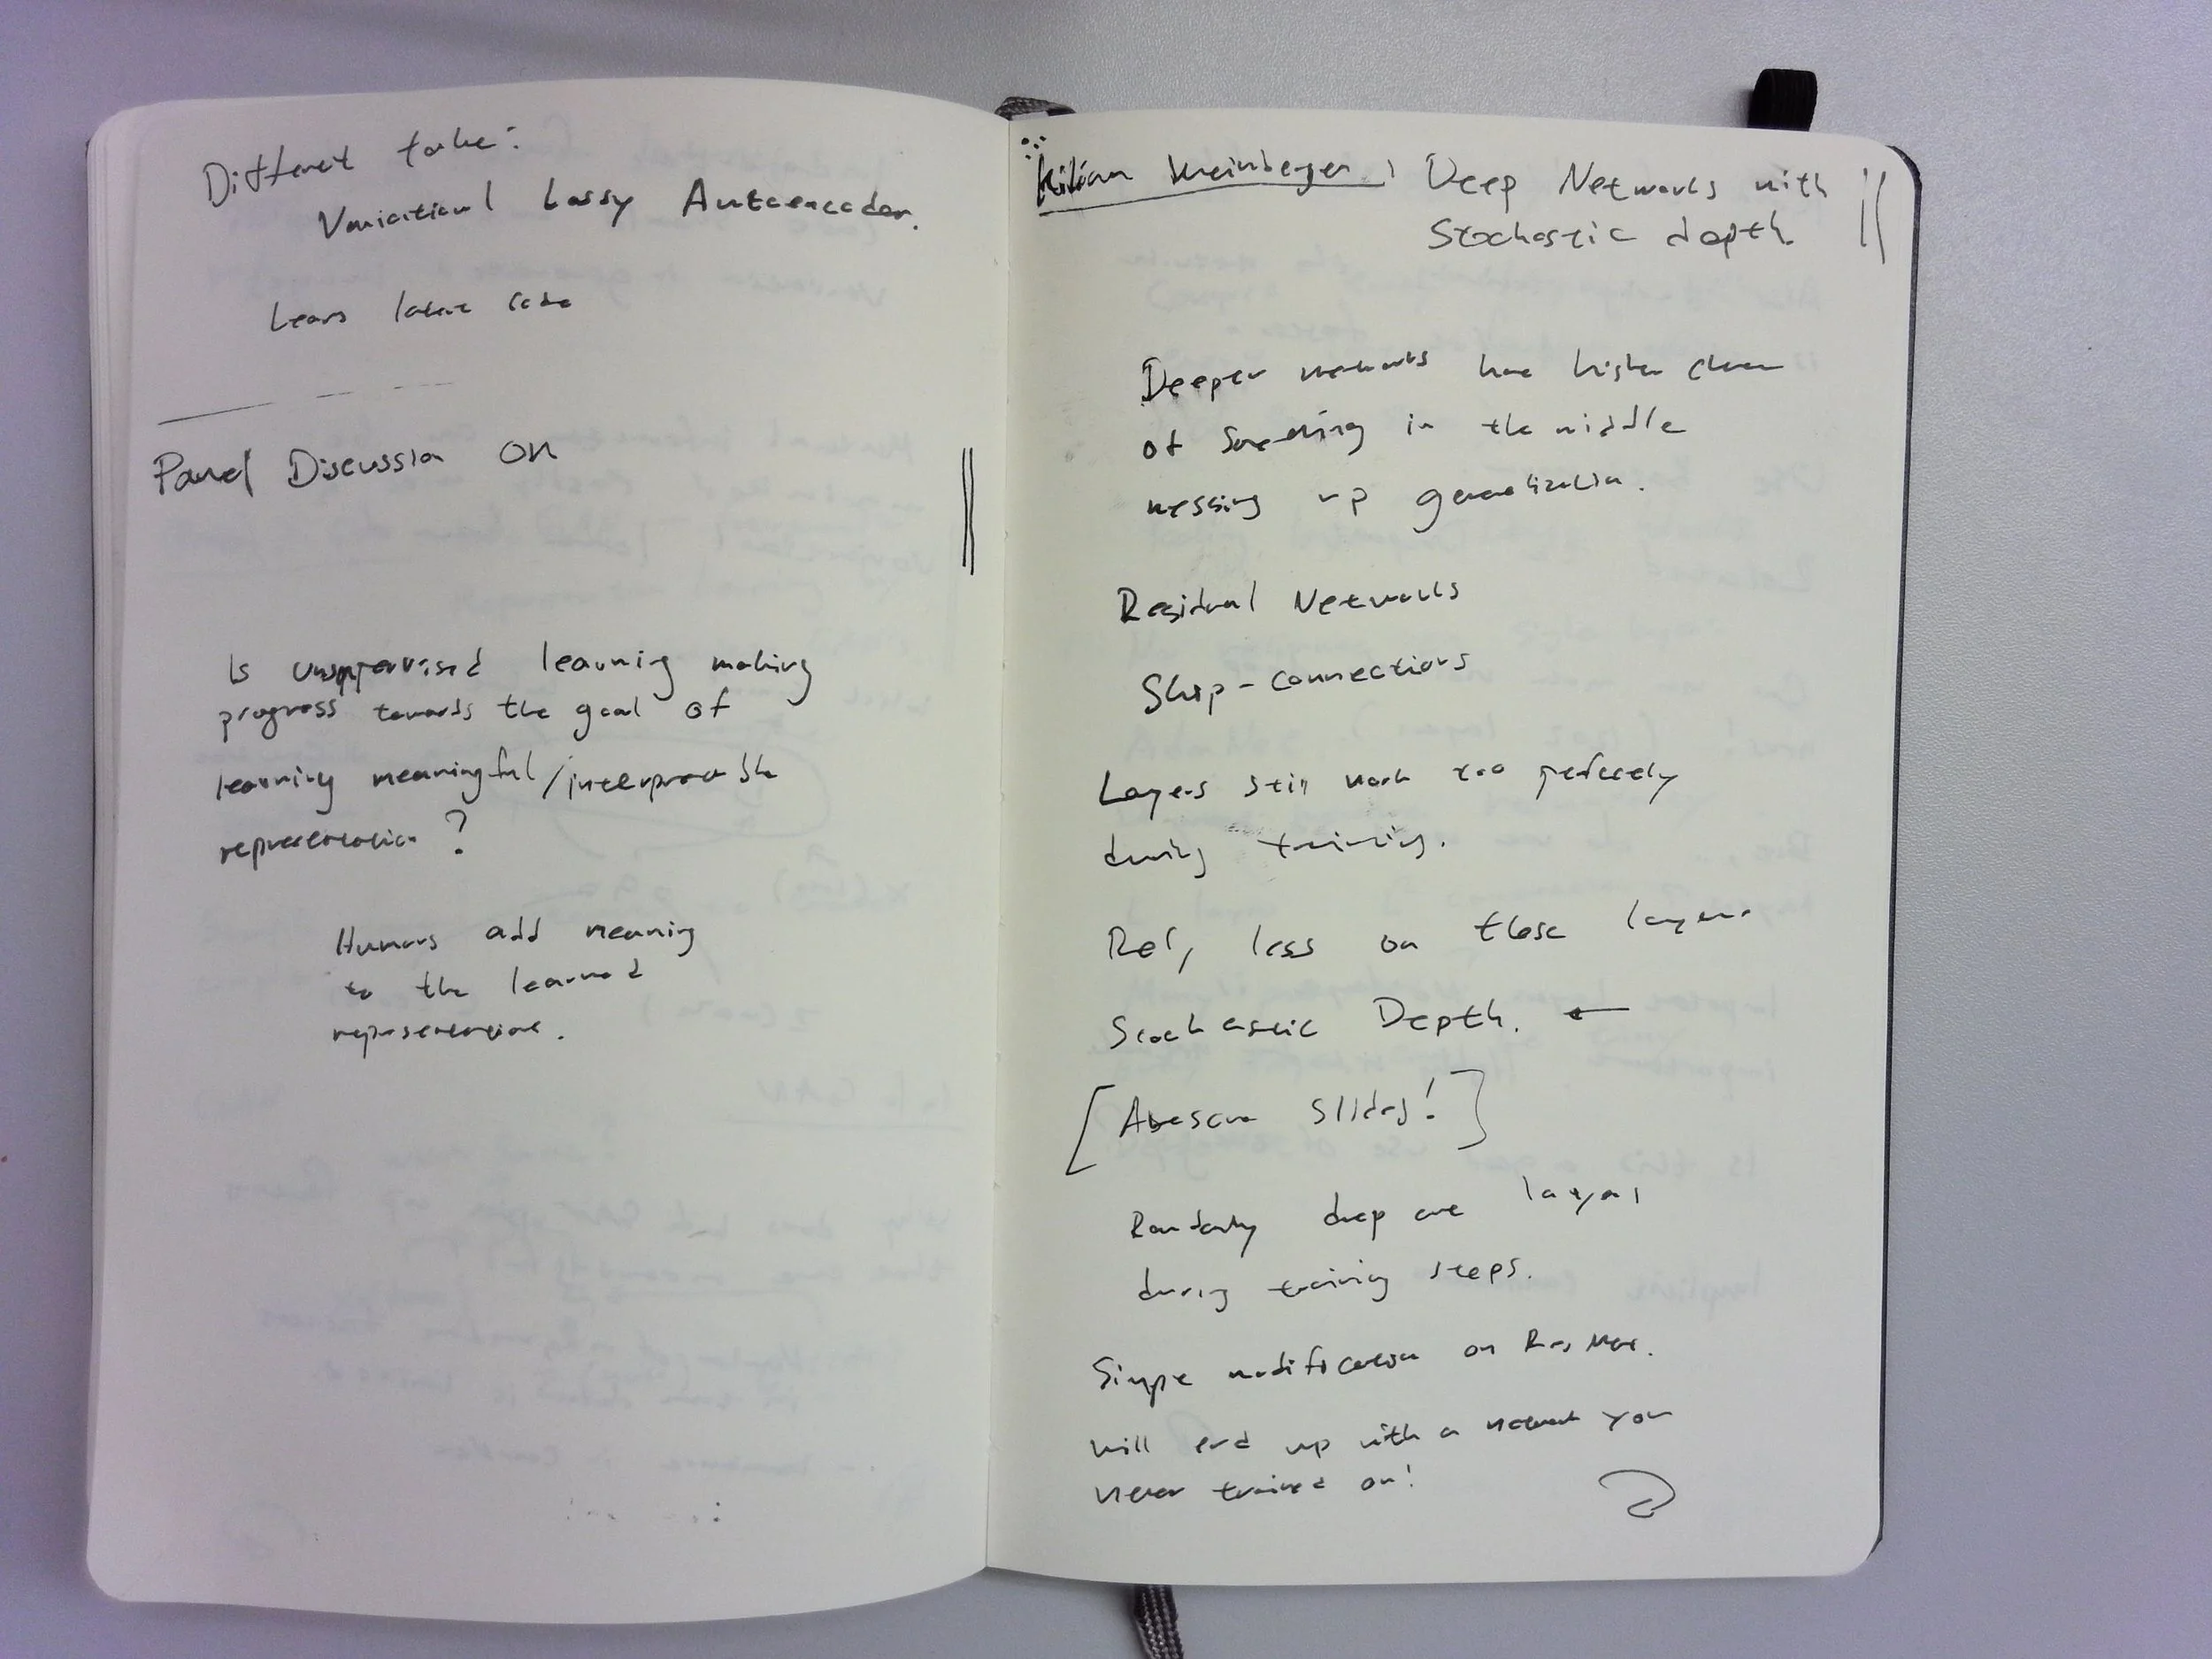 Different take:
Variational Lossy Autoencoder.
Learn latent code
Panel Discussion on
Is unsupervised learning making
progress towards the goal of
learning meaningful/interpretable
representation?
Humans add meaning
to the learned
representation.
Kilian Weinberger, Deep Networks with
Stochastic depth.
Deeper networks have higher chance
of something in the middle
messing up generalization.
Residual Networks
Skip-connections
Layers still work too perfectly
during training.
Rely less on these layers
Stochastic Depth. ←
[Awesome slides!]
Randomly drop one layer
during training steps.
Simple modification on ResNet.
Will end up with a network you
never trained on!